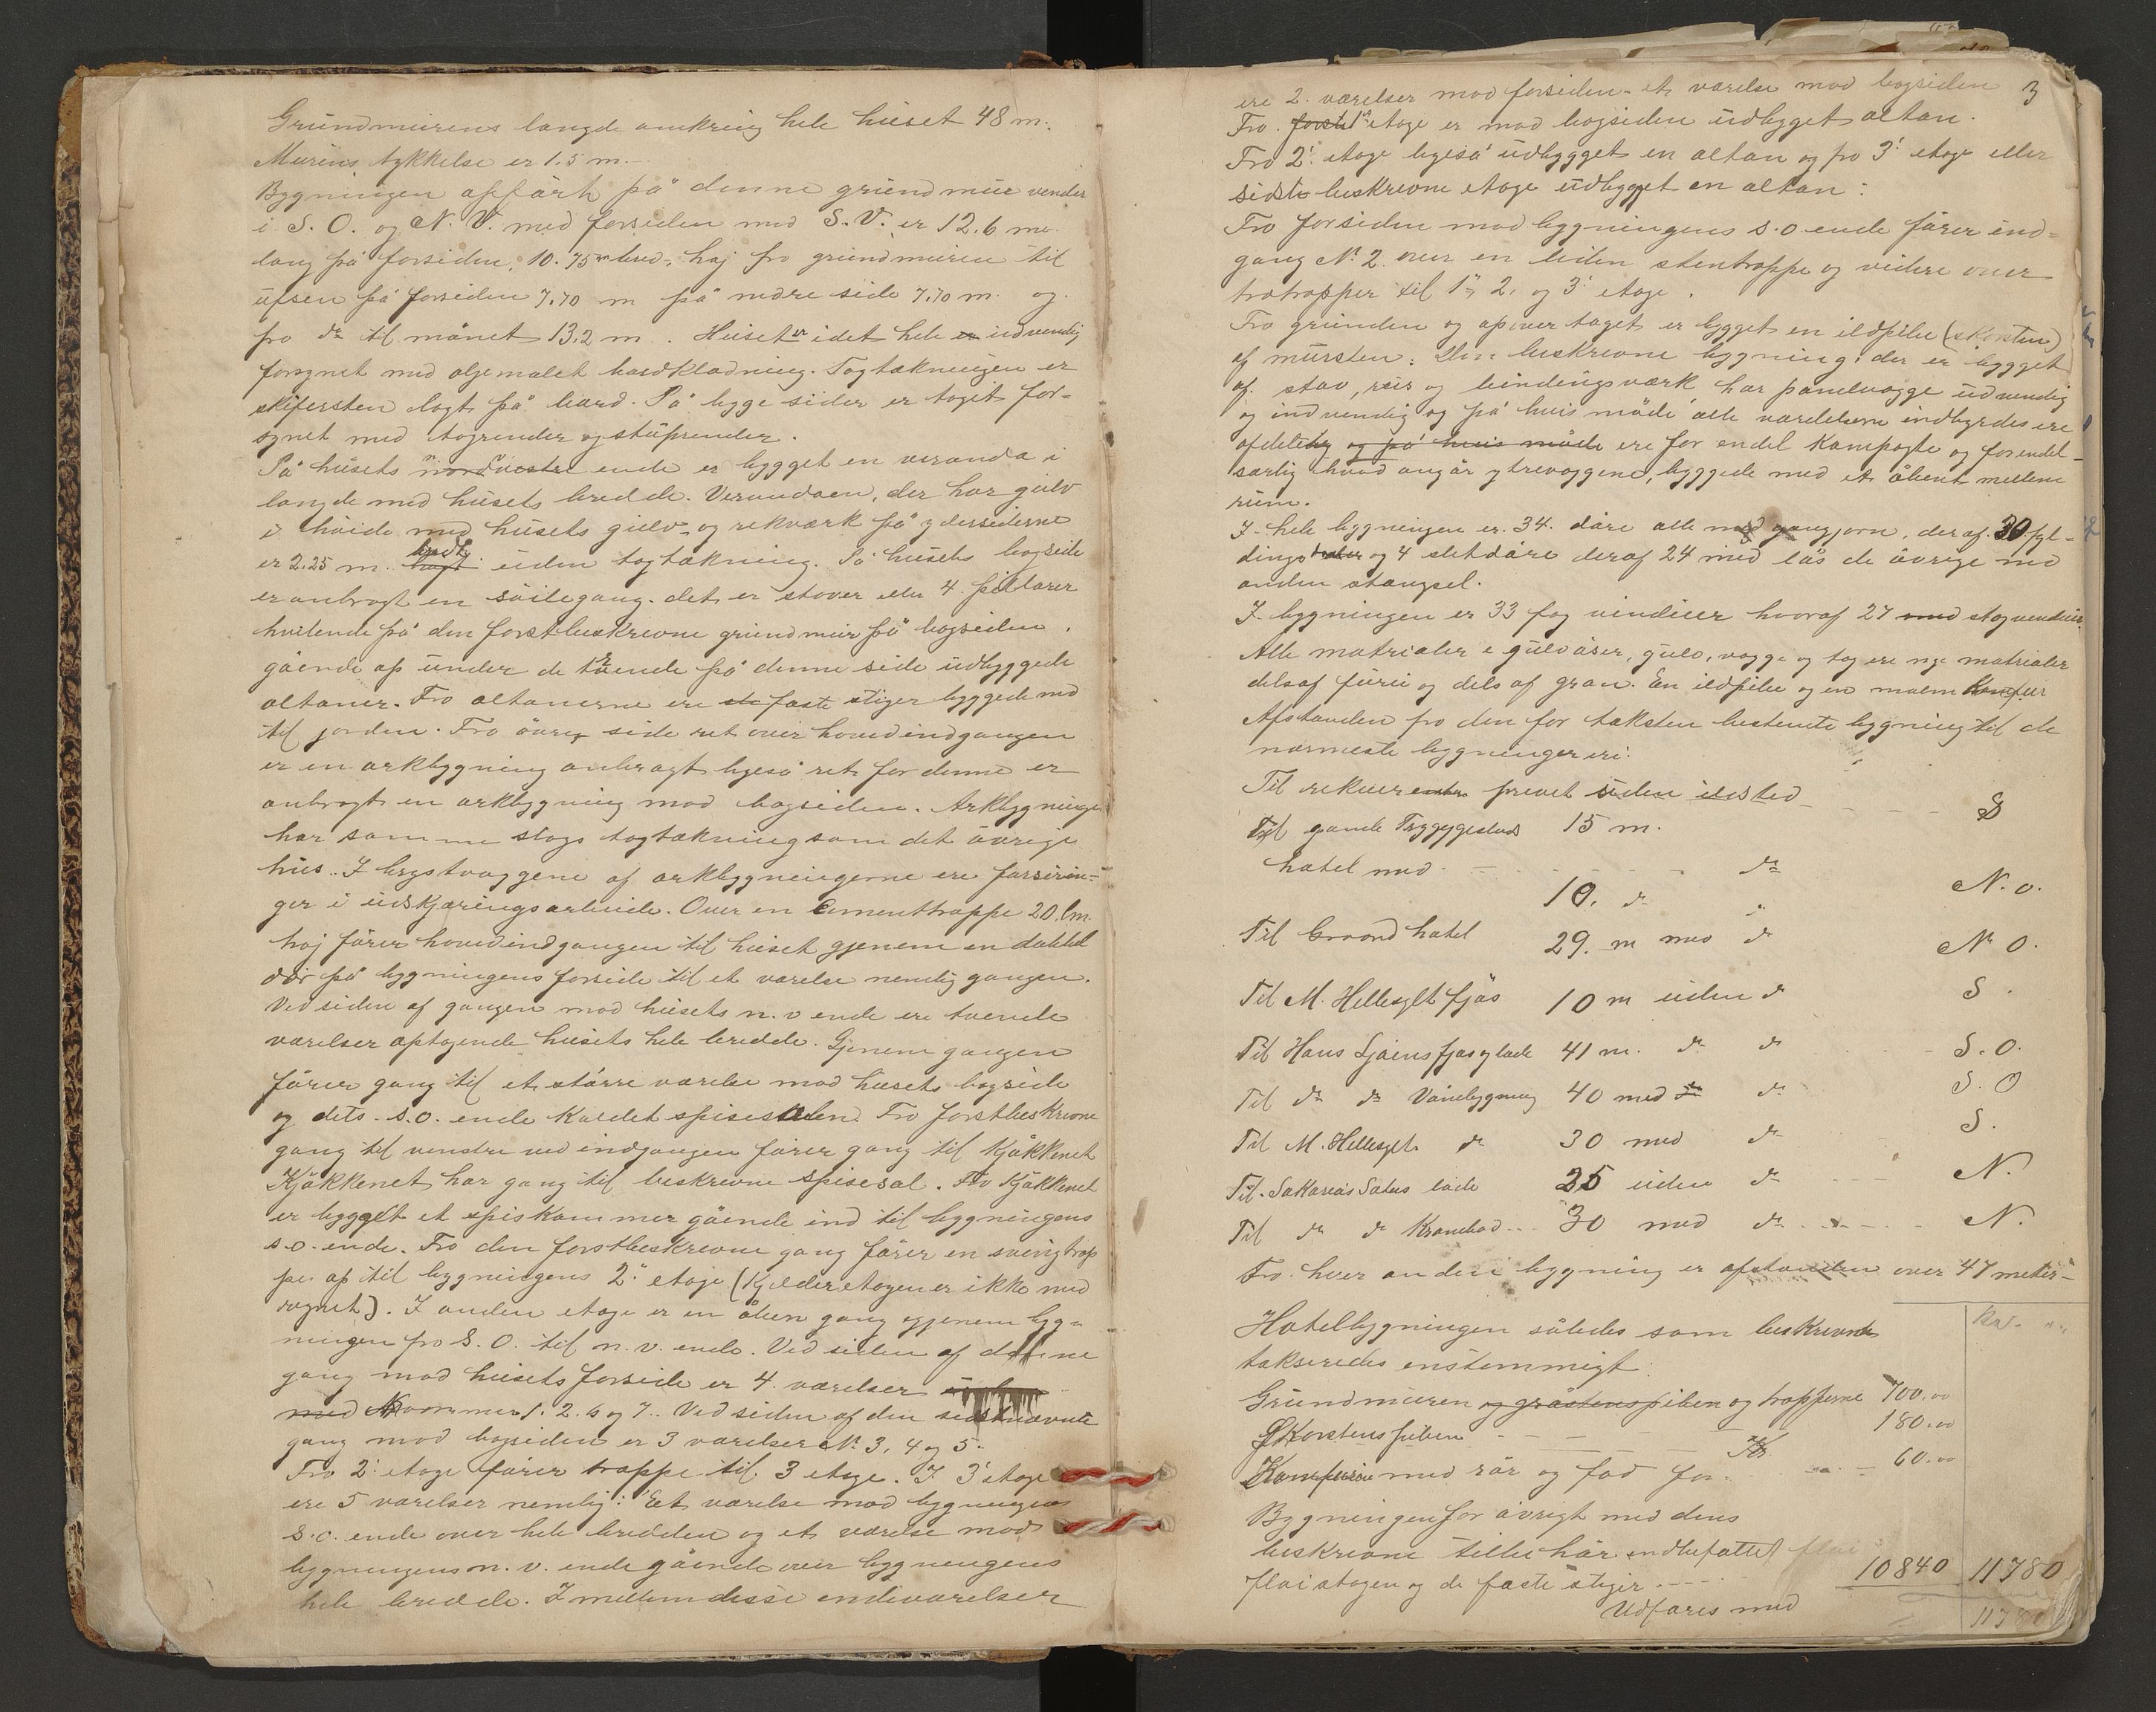 Grundmurens langde omkring hele huset 48 m.
Murens tykkelse er 1.5 m.
Bygningen opførh på denne grundmur vender
i S. O. og N. V. med forsiden mod S. V. er 12.6 m
lang på forsiden, 10.75 m bred, høj fra grundmuren til
ufsen på forsiden 7.70 m på nedre side 7.70 m og
fra do til mønet 13.2 m. Huset er idet hele er udvendig
forsynet med oljemalet bordkladning. Tagtækningen er
skifersten lagt på bord. På begge sider er taget for-
synet med tagrender og stuprender.
På husets nordvestre ende er bygget en veranda i
langde med husets bredde. Verandaen, der har gulv
i høide med husets gulv og rekværk på ydersiderne
er 2.25 m. bredt uden tagtækning. På husets bagside
er anbragt en søilegang. det er stover eller 4 pillarer
hvilende på den førstbeskrevne grundmur på bagsiden.
gående op under de tvende på denne side udbyggede
altaner. Fra altanerne ere ste faste stiger byggede ned
til jorden. Fra øvre side ret over hovedindgangen
er en arkbygning anbragt ligeså ret for denne er
anbragt en arkbygning mod bagsiden. Arkbygninge
har samme slags tagtækning som det øvrige
hus. I brystvaggene af arkbygningerne ere forsirin-
ger i udskjæringsarbeide. Over en Cementtrappe 20 Cm.
høj fører hovedindgangen til huset gjenem en dobbel
dør på bygningens forside til et værelse nemlig gangen.
Ved siden af gangen mod husets n. v ende ere tvende
værelser optagende husets hele bredde. Gjenem gangen
fører gang til et større værelse mod husets bagside
og dets s.o. ende kaldet spisesalen. Fra førstbeskrevne
gang til venstre ved indgangen fører gang til Kjøkkenet
Kjøkkenet har gang til beskrevne spisesal. Fra Kjøkkenet
er bygget et spiskammer gående ind til bygningens
s.o. ende. Fra den førstbeskrevne gang fører en svingtrap
pe op til bygningens 2. etage (Kjelderetagen er ikke med
regnet). I anden etage er en åben gang gjenem byg-
ningen fra S. O. til n. v. ende. Ved siden af denne
gang mod husets forside er 4. værelser
med Nommer 1. 2. 6 og 7. Ved siden af den sidstnævnte
gang mod bagsiden er 3 værelser No 3, 4 og 5.
Fra 2. etage fører trappe til 3 etage. I 3. etage
ere 5 værelser nemlig: Eet værelse mod bygningens
S.O. ende over hele bredden og et værelse mod
bygningens n. v. ende gående over bygningens
hele bredde. I mellem disse endeværelser
3
ere 2. værelser mod forsiden et værelse mod bagsiden
Fra første 1. etage er mod bagsiden udbygget altan.
Fra 2. etage ligeså udbygget en altan og fra 3. etage eller
sidste beskrevne etage udbygget en altan:
Fra forsiden mod bygningens s.o ende fører ind-
gang No 2 over en liden stentrappe og videre over
trætrapper til 1., 2. og 3. etage.
Fra grunden og op over taget er bygget en ildpibe (skorsten)
af mursten: Den beskrevne bygning: der er bygget
af stav, reis og bindingsværk har panelvægge udvendig
og indvendig og på hvis måde alle værelserne indbyrdes ere
afdeleky og på hvis måde ere for endel Kompagte og for endel
særlig hvad angår ytrevæggene, byggede med et åbent mellem
rum.
I hele bygningen er 34. døre alle med gangjern, der af 30 fyl-
dings og 4 sletdøre deraf 24 med lås de øvrige med
anden stængsel.
I bygningen er 33 fag vinduer hvoraf 27 med stagvinduer
Alle matrialer e gulvåser, gulv, vægge og tag ere nye matrialer
dels af furu og dels af gran. En ildpibe og en malm Komfur
Afstanden fra den for taksten bestemte bygning til de
nærmeste bygninger eri:
Til rekverenten privet uden ildsted S
Til gamle Tryggestad 15 m.
hotel med do
10. do N. o.
Til Grand hotel 29. m med do N O.
Til M. Hellesylt fjøs 10 m uden do S.
Til Hans Ljøens fjøs og lade 41 m. do do S. O.
Til do do Vånebygning 40 med do S. O
Til M. Hellesylt do 30 med do S.
Til Sakarias Sætres lade 25 uden do N.
Til do do Krambod 30 med do N.
Fra hver anden bygning er afstanden over 47 meter
Hotelbygningen således som beskrevet
takseredes enstemmigt:
Kr.
Grundmuren og gråstenspiben og trapperne 700.00
Skorstenspiben 180.00
Komfuren med rør og fad for Kr. 60.00
Bygningen for øvrigt med dens
beskrevne tilbehør indbefattet
flaistagen og de faste stiger 10840 11780
Udføres med 11780